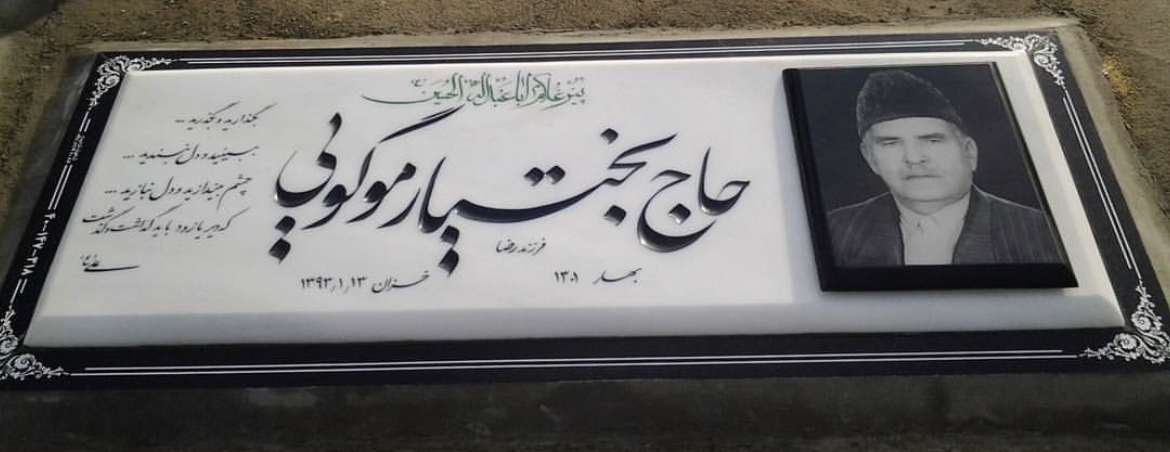 پیر غلام اباعبدالله الحسین ع
حاج بختیار موگویی
فرزند رضا
بهار ۱۳۰۱
خزان ۱۳۹۳/۱/۱۳
بگذارید و بگذرید ...
ببینید و دل نبندید ...
چشم بیندازید و دل نبازید ...
که دیر یا زود باید گذاشت و گذشت
۴۰-۱۴۷-۳۱۸